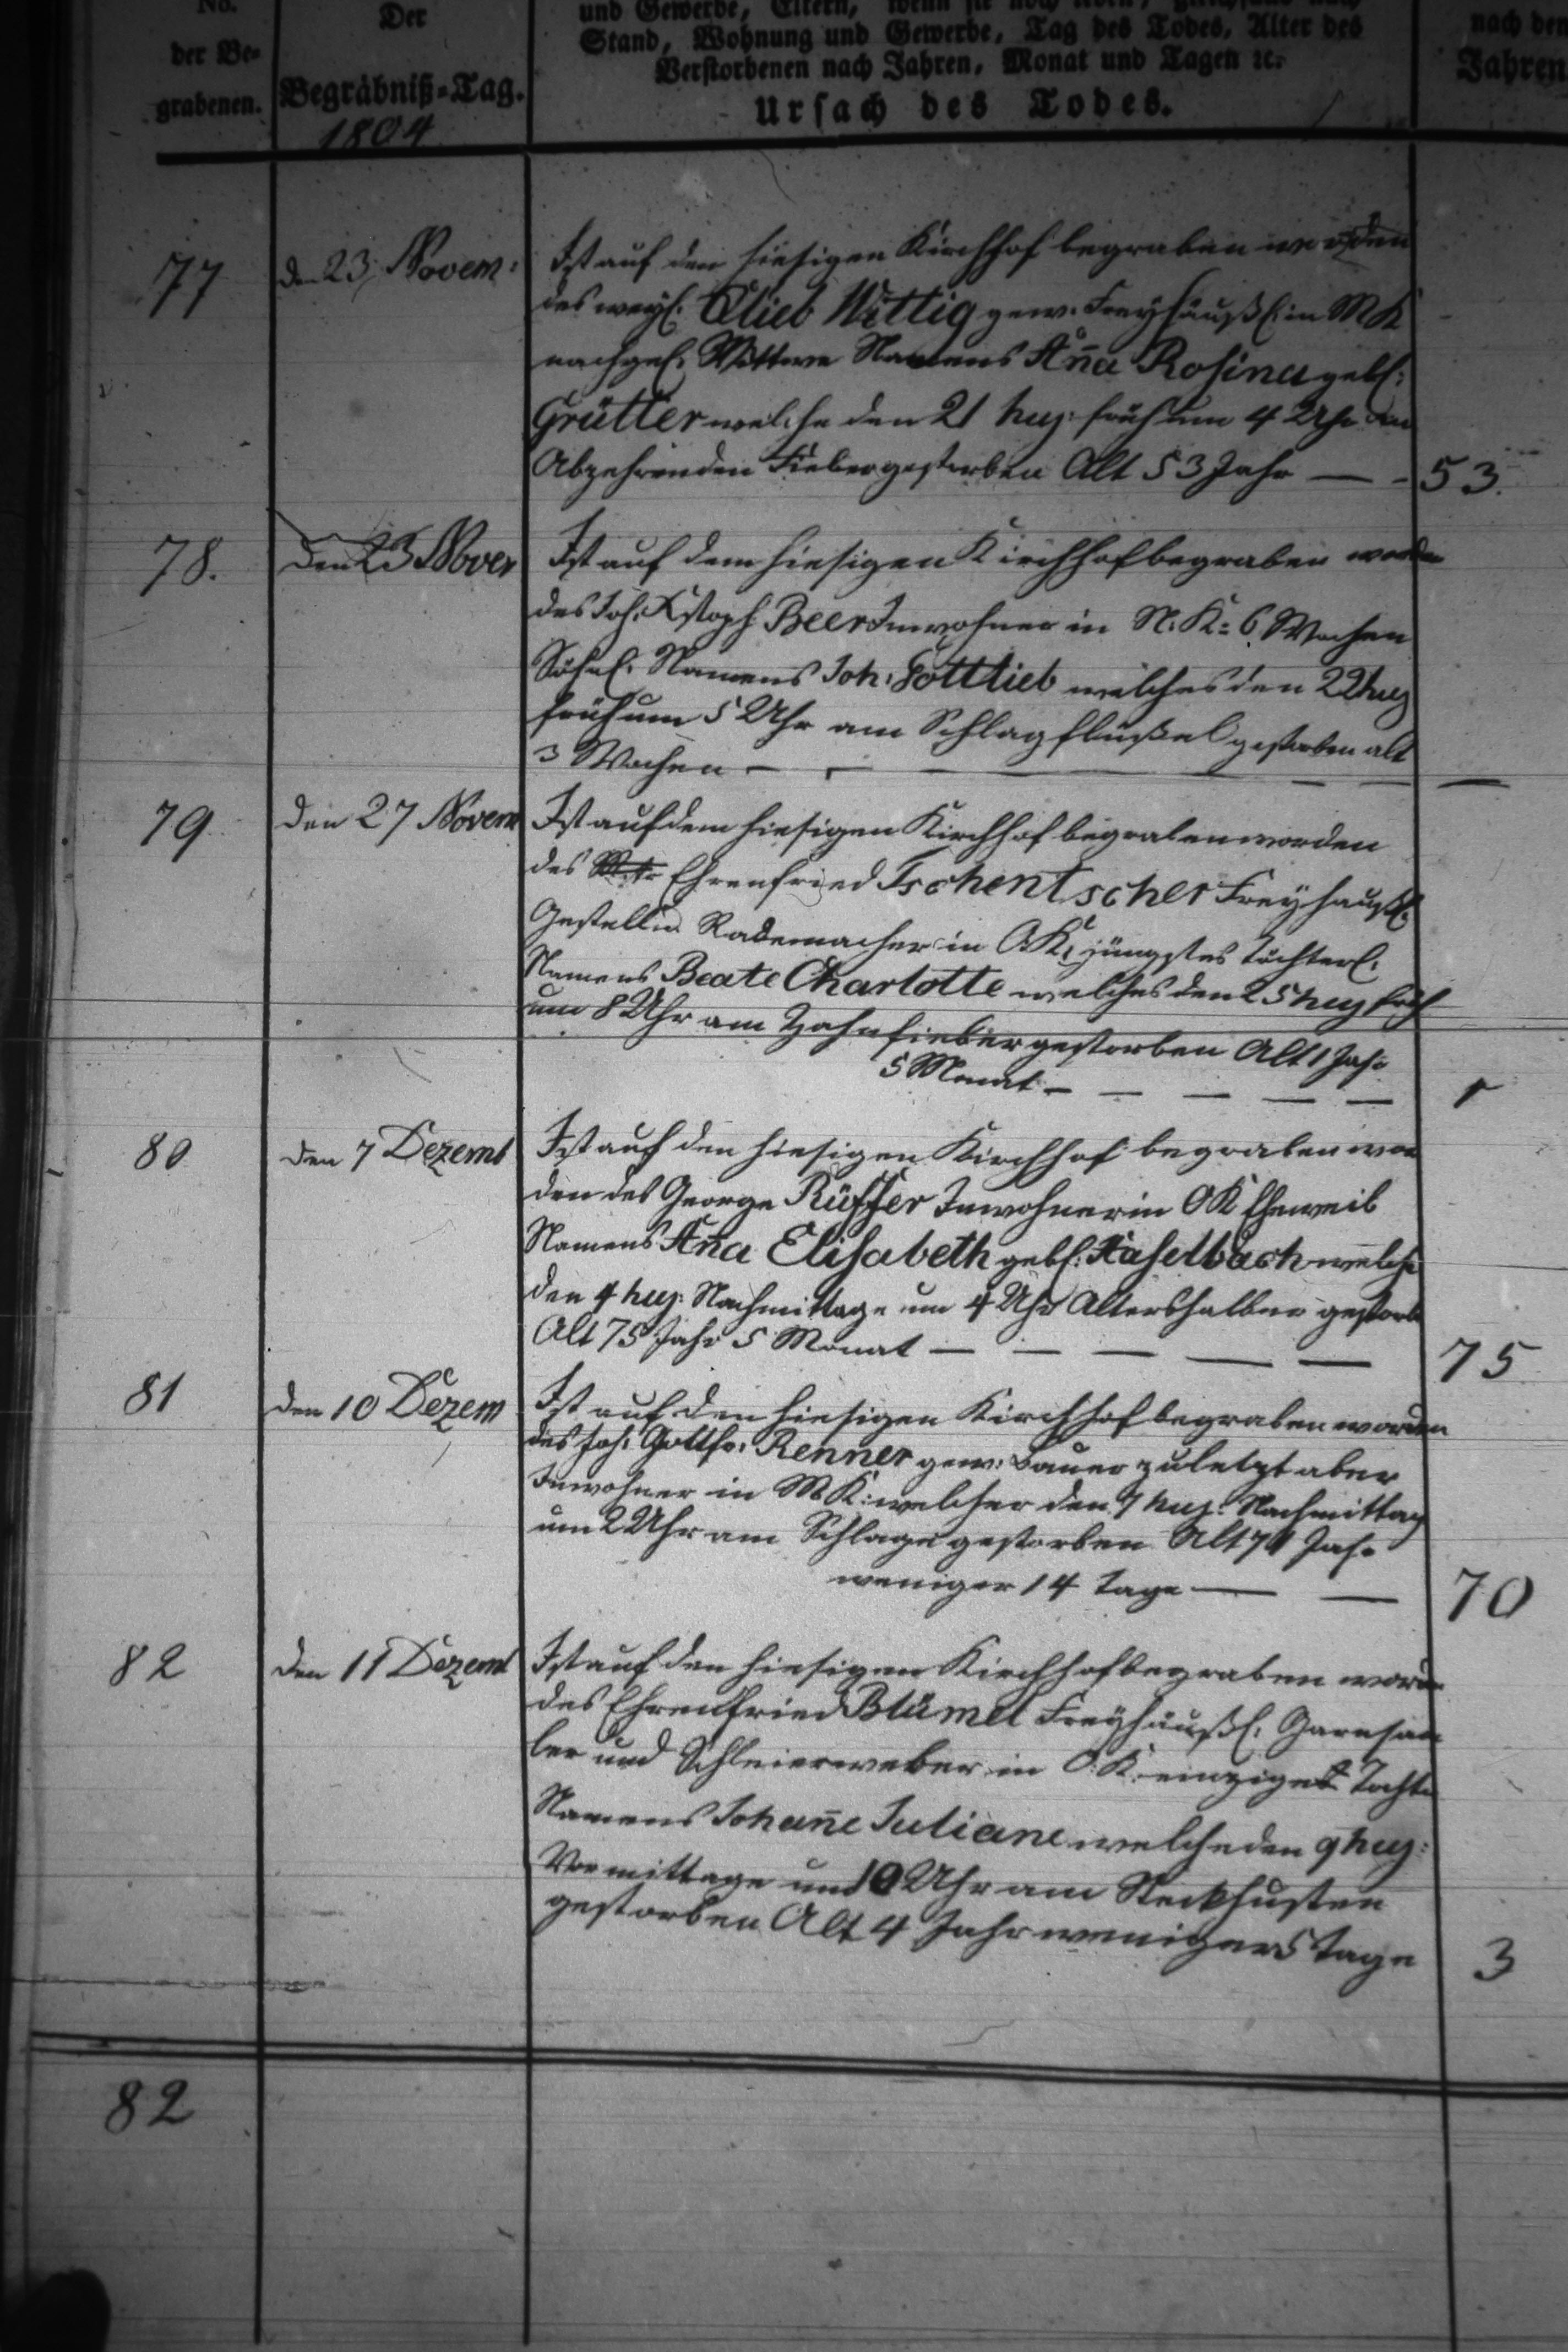 No.
der Be-
grabenen.
Der
Begräbniß-Tag.
1804
und Gewerbe, Eltern, wenn sie noch leben,
Stand, Wohnung und Gewerbe, Tag des Todes, Alter des
Verstorbenen nach Jahren, Monat und Tagen ꝛc.
Ursach des Todes.
nach den
Jahren
77
den 23 Novem:
Ist auf den hiesigen Kirchhof begraben worden
des weyl. Glieb Wittig gew. Freyhäußl. in M K
nachgel. Wittwe Namens Ańa Rosina gebl:
Grütter welche den 21 huj: früh um 4 Uhr am
Abzehrenden Fieber gestorben Alt 53 Jahr — -
53.
78.
den 23 Novem
Ist auf dem hiesigen Kirchhof begraben worden
des Joh. Xstoph Beer Inwohner in N: K: 6 Wochen
Söhnl. Namens Joh: Gottlieb welches den 22 huj
früh um 5 Uhr am Schlagflüßel gestorben alt
3 Wochen — — — — —
—
79
den 27 Novem
Ist auf dem hiesigen Kirchhof begraben worden
des Ehrenfried Tschentscher Freyhäußl.
Rademacher in O K: jüngstes Töchterl.
Namens Beate Charlotte welches den 25 huj früh
um 8 Uhr am Zahnfieber gestorben Alt 1 Jahr
5 Monat — — — — —
1
80
den 7 Dezemb
Ist auf den hiesigen Kirchhof begraben wor
den des George Rüffer Inwohner in O K Eheweib
Namens Ańa Elisabeth gebl: Haselbach welche
den 4 huj: Nachmittage um 4 Uhr Altershalber gestorb
Alt 75 Jahr 5 Monat — — — — —
75
81
den 10 Dezem
Ist auf den hiesigen Kirchhof begraben worden
des Joh: Gottfr: Renner gew: Bauer zuletzt aber
Inwohner in M K: welcher den 7 huj: Nachmittag
um 2 Uhr am Schlage gestorben Alt 71 Jahr
weniger 14 Tage — —
70
82
den 11 Dezemb
Ist auf den hiesigen Kirchhof begraben worden
des Ehrenfried Blümel Freyhäußl. Garnhan
ler und Schleierweber in O: K: einzige Tochter
Namens Johańe Juliane welche den 9 huj:
Vormittage um 10 Uhr am Steckhusten
gestorben Alt 4 Jahr weniger 5 Tage
3
82